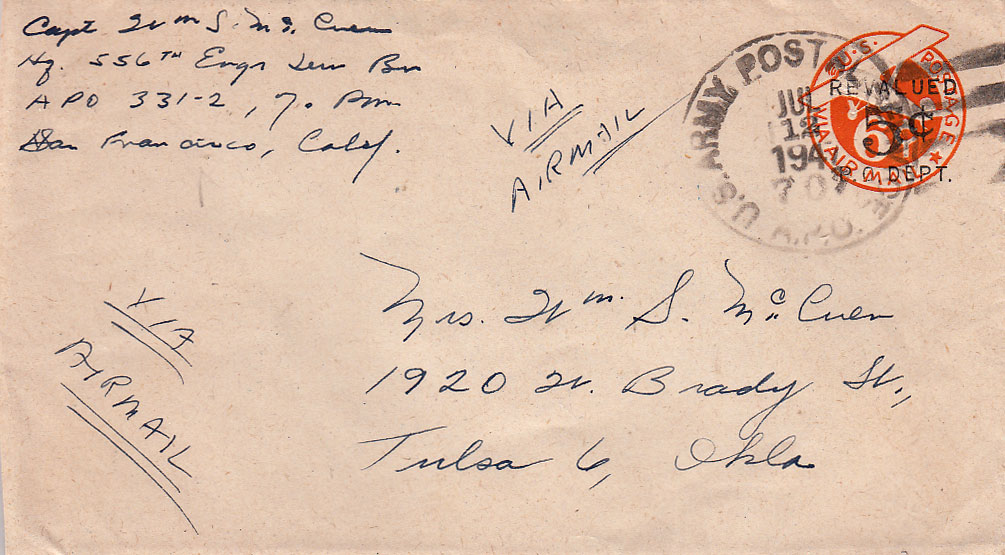 Capt Wm S. McCuen
Hq. 556TH Engr Serv Bn
APO 331-2, % Pm
San Francisco, Calif.
VIA
AIRMAIL
U.S. ARMY POST
A.P.O.
JUL
12
194
U.S. POSTAGE
VIA AIR MAIL
REVALUED
5¢
P.O. DEPT.
VIA
AIRMAIL
Mrs. Wm. S. McCuen
1920 W. Brady St.,
Tulsa 6, Okla